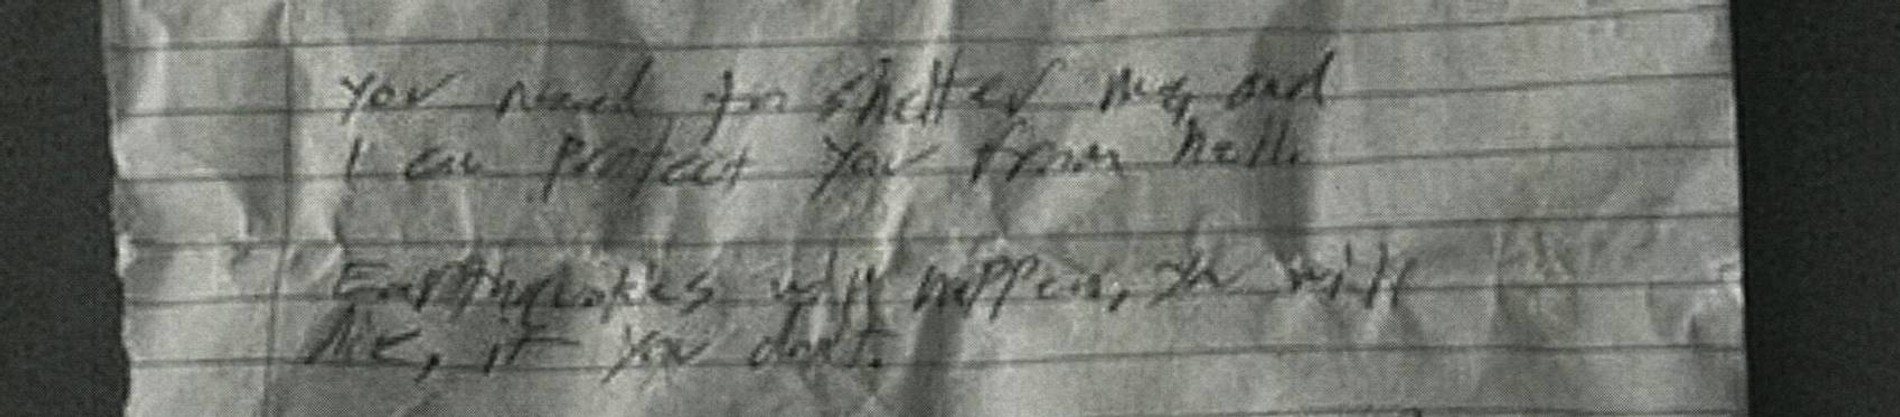 You need to shelter me, and
I can protect you from hell.
Earthquakes will happen, you will
die, if you don't.